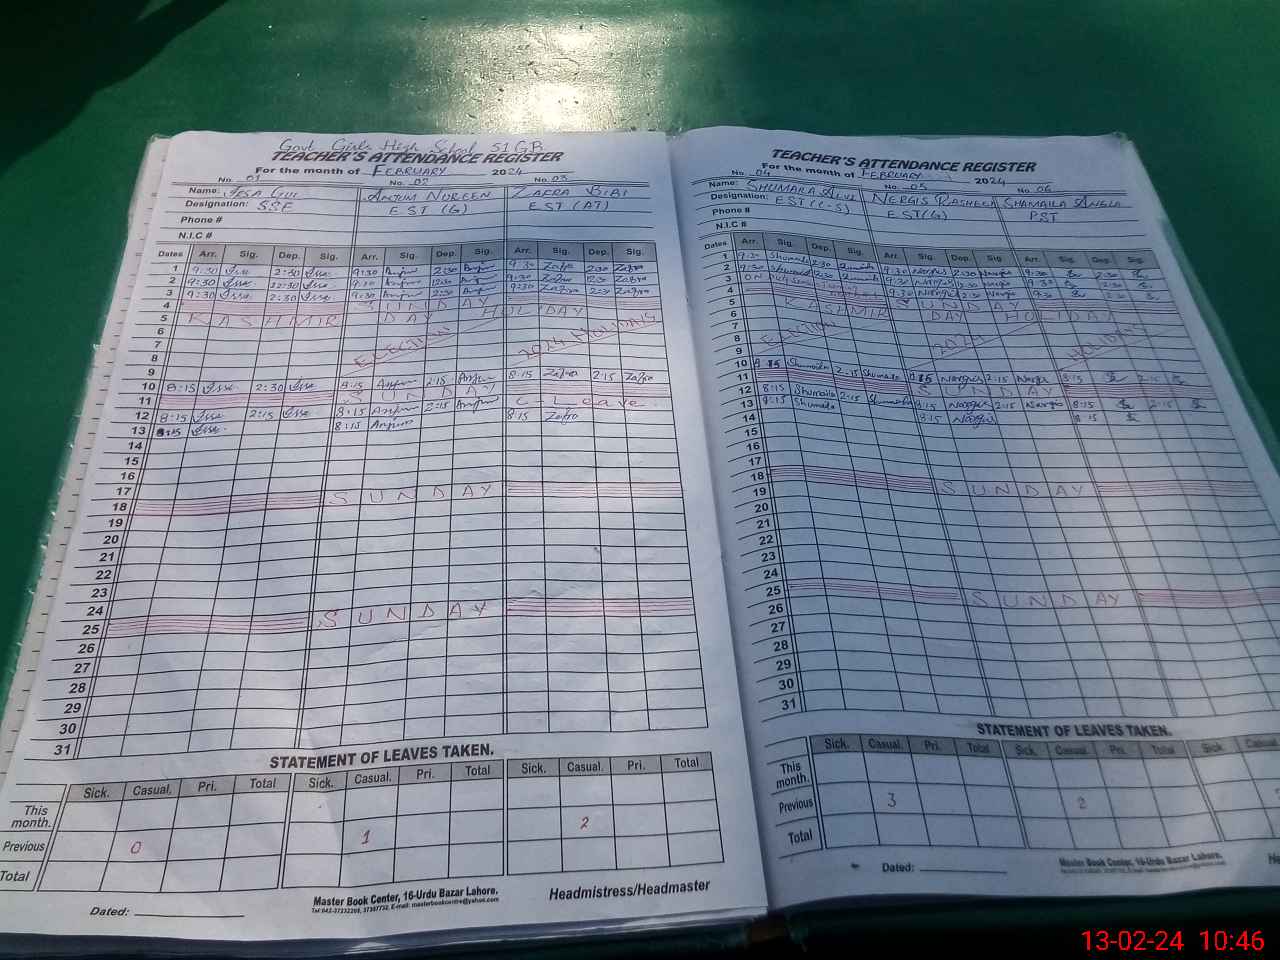 Govt Girls High School 51 GB
TEACHER'S ATTENDANCE REGISTER
For the month of FEBRUARY 2024
No. 01 No. 02 No. 03
Name: IRSA GUL ANJUM NOREEN ZAFRA BIBI
Designation: SSE EST (G) EST (AT)
Phone #
N.I.C #
Dates Arr. Sig. Dep. Sig. Arr. Sig. Dep. Sig. Arr. Sig. Dep. Sig.
1 9:30 2:30 9:30 Anjum 2:30 Anjum 9:30 Zafra 2:30 Zafra
2 9:30 12:30 9:30 Anjum 12:30 Anjum 9:30 Zafra Zafra
3 9:30 2:30 9:30 Anjum 2:30 Anjum 9:30 Zafra 2:30 Zafra
4 SUNDAY
5 KASHMIR DAY HOLIDAY
6
7 ELECTION 2024 HOLIDAYS
8
9
10 8:15 2:30 8:15 Anjum 2:15 Anjum 8:15 Zafra 2:15 Zafra
11 SUNDAY
12 8:15 2:15 8:15 Anjum 2:15 Anjum C-Leave
13 8:15 8:15 Anjum 8:15 Zafra
14
15
16
17
18 SUNDAY
19
20
21
22
23
24
25 SUNDAY
26
27
28
29
30
31
STATEMENT OF LEAVES TAKEN.
Sick. Casual. Pri. Total Sick. Casual. Pri. Total Sick. Casual. Pri. Total
This month.
Previous 0 1 2
Total
Dated:
Master Book Center, 16-Urdu Bazar Lahore.
Headmistress/Headmaster
TEACHER'S ATTENDANCE REGISTER
For the month of FEBRUARY 2024
No. 04 No. 05 No. 06
Name: SHUMAILA NERGIS RASHEED SHAMAILA ANGLA
Designation: EST (C-S) EST(G) PST
Phone #
N.I.C #
Dates Arr. Sig. Dep. Sig. Arr. Sig. Dep. Sig. Arr. Sig. Dep. Sig.
1 9:30 Shumaila 2:30 Shumaila 9:30 Nargis 2:30 Nargis 9:30 2:30
2 9:30 Shumaila 12:30 Shumaila 9:30 Nargis 12:30 Nargis 9:30 12:30
3 ON 9:30 Nargis 2:30 Nargis 9:30 2:30
4 SUNDAY
5 KASHMIR DAY HOLIDAY
6
7
8 ELECTION 2024 HOLIDAYS
9
10 8:15 Shumaila 2:15 Shumaila 8:15 Nargis 2:15 Nargis 8:15 2:15
11 SUNDAY
12 8:15 Shumaila 2:15 Shumaila 8:15 Nargis 2:15 Nargis 8:15 2:15
13 8:15 Shumaila 8:15 Nargis 8:15
14
15
16
17
18 SUNDAY
19
20
21
22
23
24
25 SUNDAY
26
27
28
29
30
31
STATEMENT OF LEAVES TAKEN.
Sick. Casual. Pri. Total Sick. Casual. Pri. Total Sick.
This month.
Previous 3 2
Total
Dated:
Master Book Center, 16-Urdu Bazar Lahore.
13-02-24 10:46